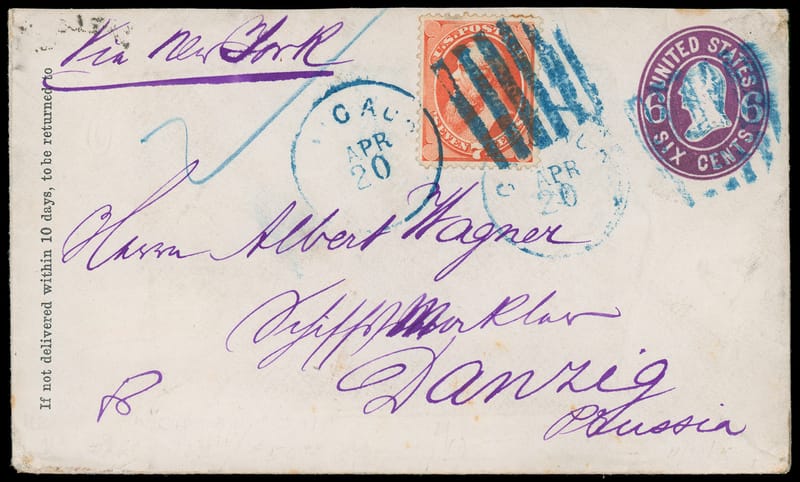 Via New York
If not delivered within 10 days, to be returned to
U.S. POST
SEVEN
7
UNITED STATES
6 6
SIX CENTS
CAG
APR
20
C
APR
20
Herrn Albert Wagner
Schiffs Makler
Danzig
Prussia